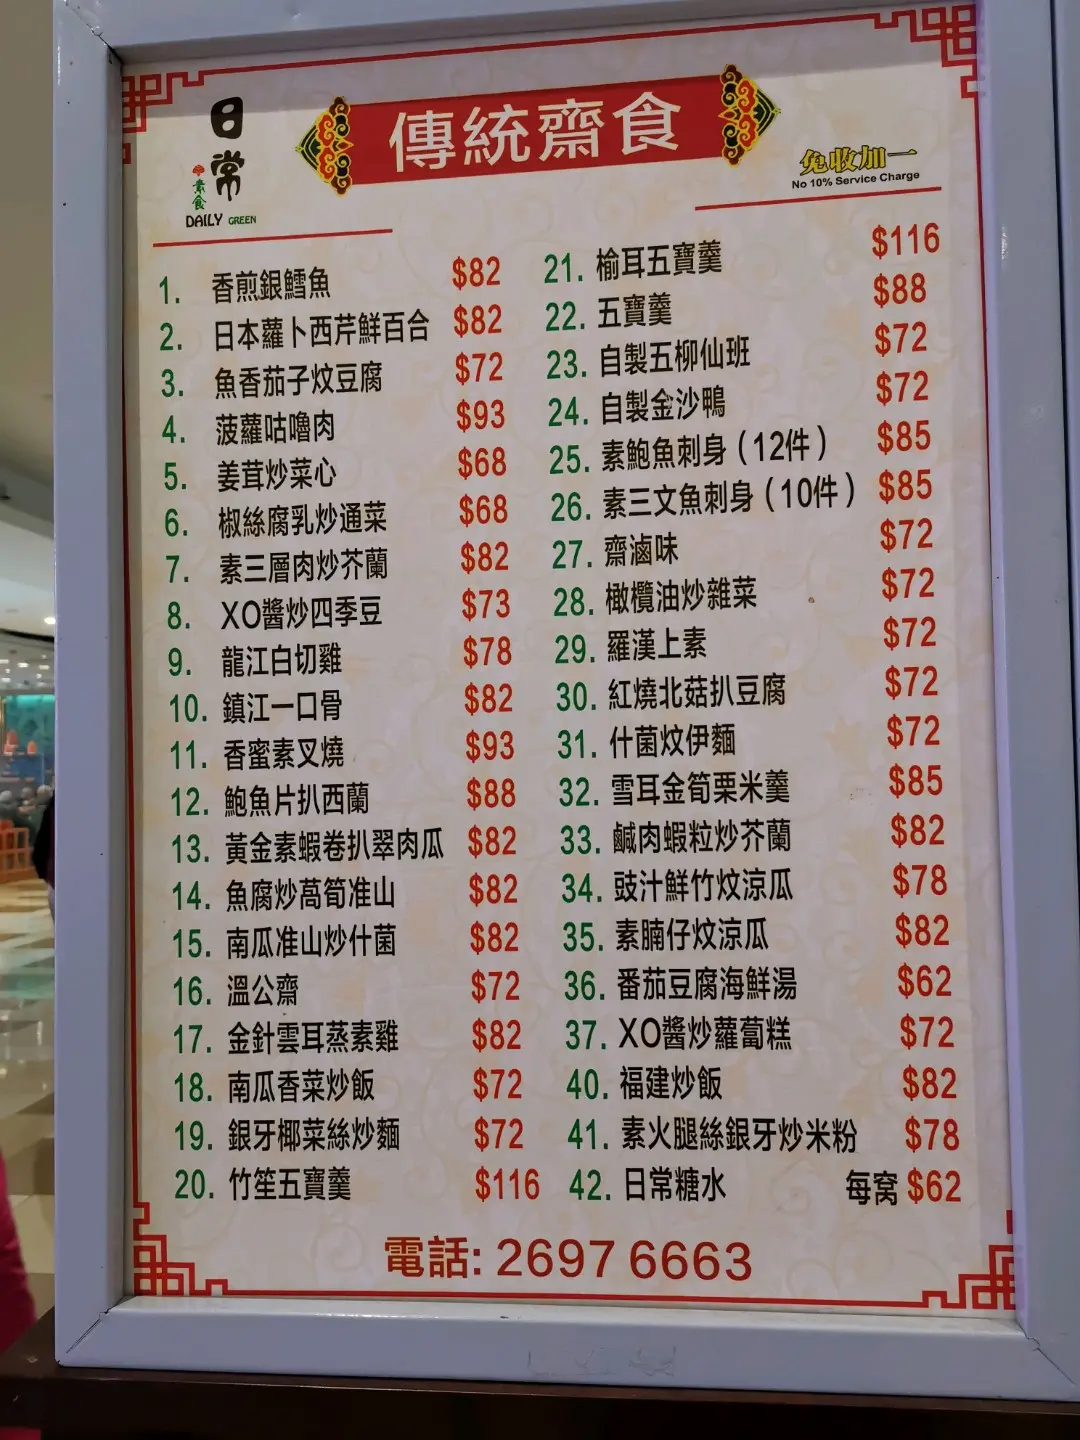 日常
素食
DAILY GREEN
傳統齋食
免收加一
No 10% Service Charge
1. 香煎銀鱈魚 $82
2. 日本蘿卜西芹鮮百合 $82
3. 魚香茄子炆豆腐 $72
4. 菠蘿咕嚕肉 $93
5. 姜茸炒菜心 $68
6. 椒絲腐乳炒通菜 $68
7. 素三層肉炒芥蘭 $82
8. XO醬炒四季豆 $73
9. 龍江白切雞 $78
10. 鎮江一口骨 $82
11. 香蜜素叉燒 $93
12. 鮑魚片扒西蘭 $88
13. 黃金素蝦卷扒翠肉瓜 $82
14. 魚腐炒萵筍准山 $82
15. 南瓜准山炒什菌 $82
16. 溫公齋 $72
17. 金針雲耳蒸素雞 $82
18. 南瓜香菜炒飯 $72
19. 銀牙椰菜絲炒麵 $72
20. 竹笙五寶羹 $116
21. 榆耳五寶羹 $116
22. 五寶羹 $88
23. 自製五柳仙班 $72
24. 自製金沙鴨 $72
25. 素鮑魚刺身（12件） $85
26. 素三文魚刺身（10件） $85
27. 齋滷味 $72
28. 橄欖油炒雜菜 $72
29. 羅漢上素 $72
30. 紅燒北菇扒豆腐 $72
31. 什菌炆伊麵 $72
32. 雪耳金筍栗米羹 $85
33. 鹹肉蝦粒炒芥蘭 $82
34. 豉汁鮮竹炆涼瓜 $78
35. 素腩仔炆涼瓜 $82
36. 番茄豆腐海鮮湯 $62
37. XO醬炒蘿蔔糕 $72
40. 福建炒飯 $82
41. 素火腿絲銀牙炒米粉 $78
42. 日常糖水 每窝 $62
電話: 2697 6663